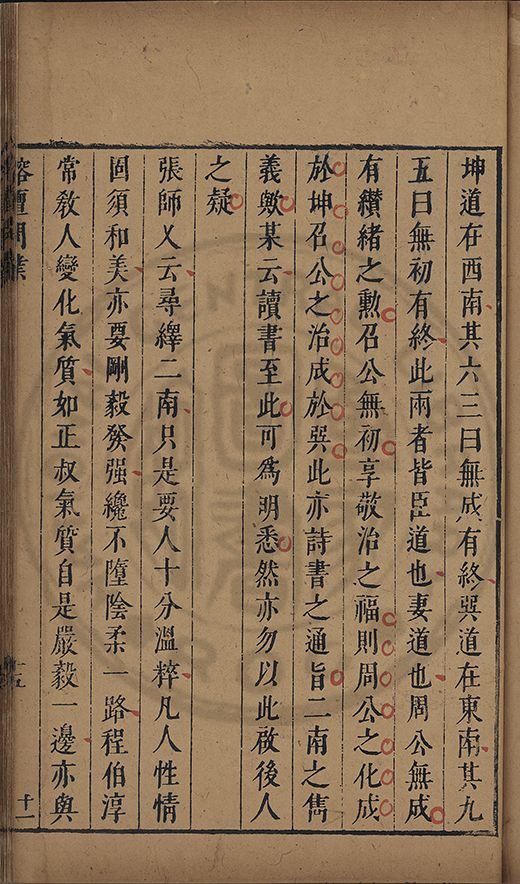 坤道在西南其六三曰無成有終巽道在東南其九
五曰無初有終此兩者皆臣道也妻道也周公無成
有纘緒之勲召公無初享敬治之福則周公之化成
於坤召公之治成於巽此亦詩書之通旨二南之雋
義歟某云讀書至此可為明悉然亦勿以此啟後人
之疑
張師乂云尋繹二南只是要人十分溫粹凡人性情
固須和美亦要剛毅發强纔不墮陰柔一路程伯淳
常敎人變化氣質如正叔氣質自是嚴毅一邊亦與
榕壇問業
十一